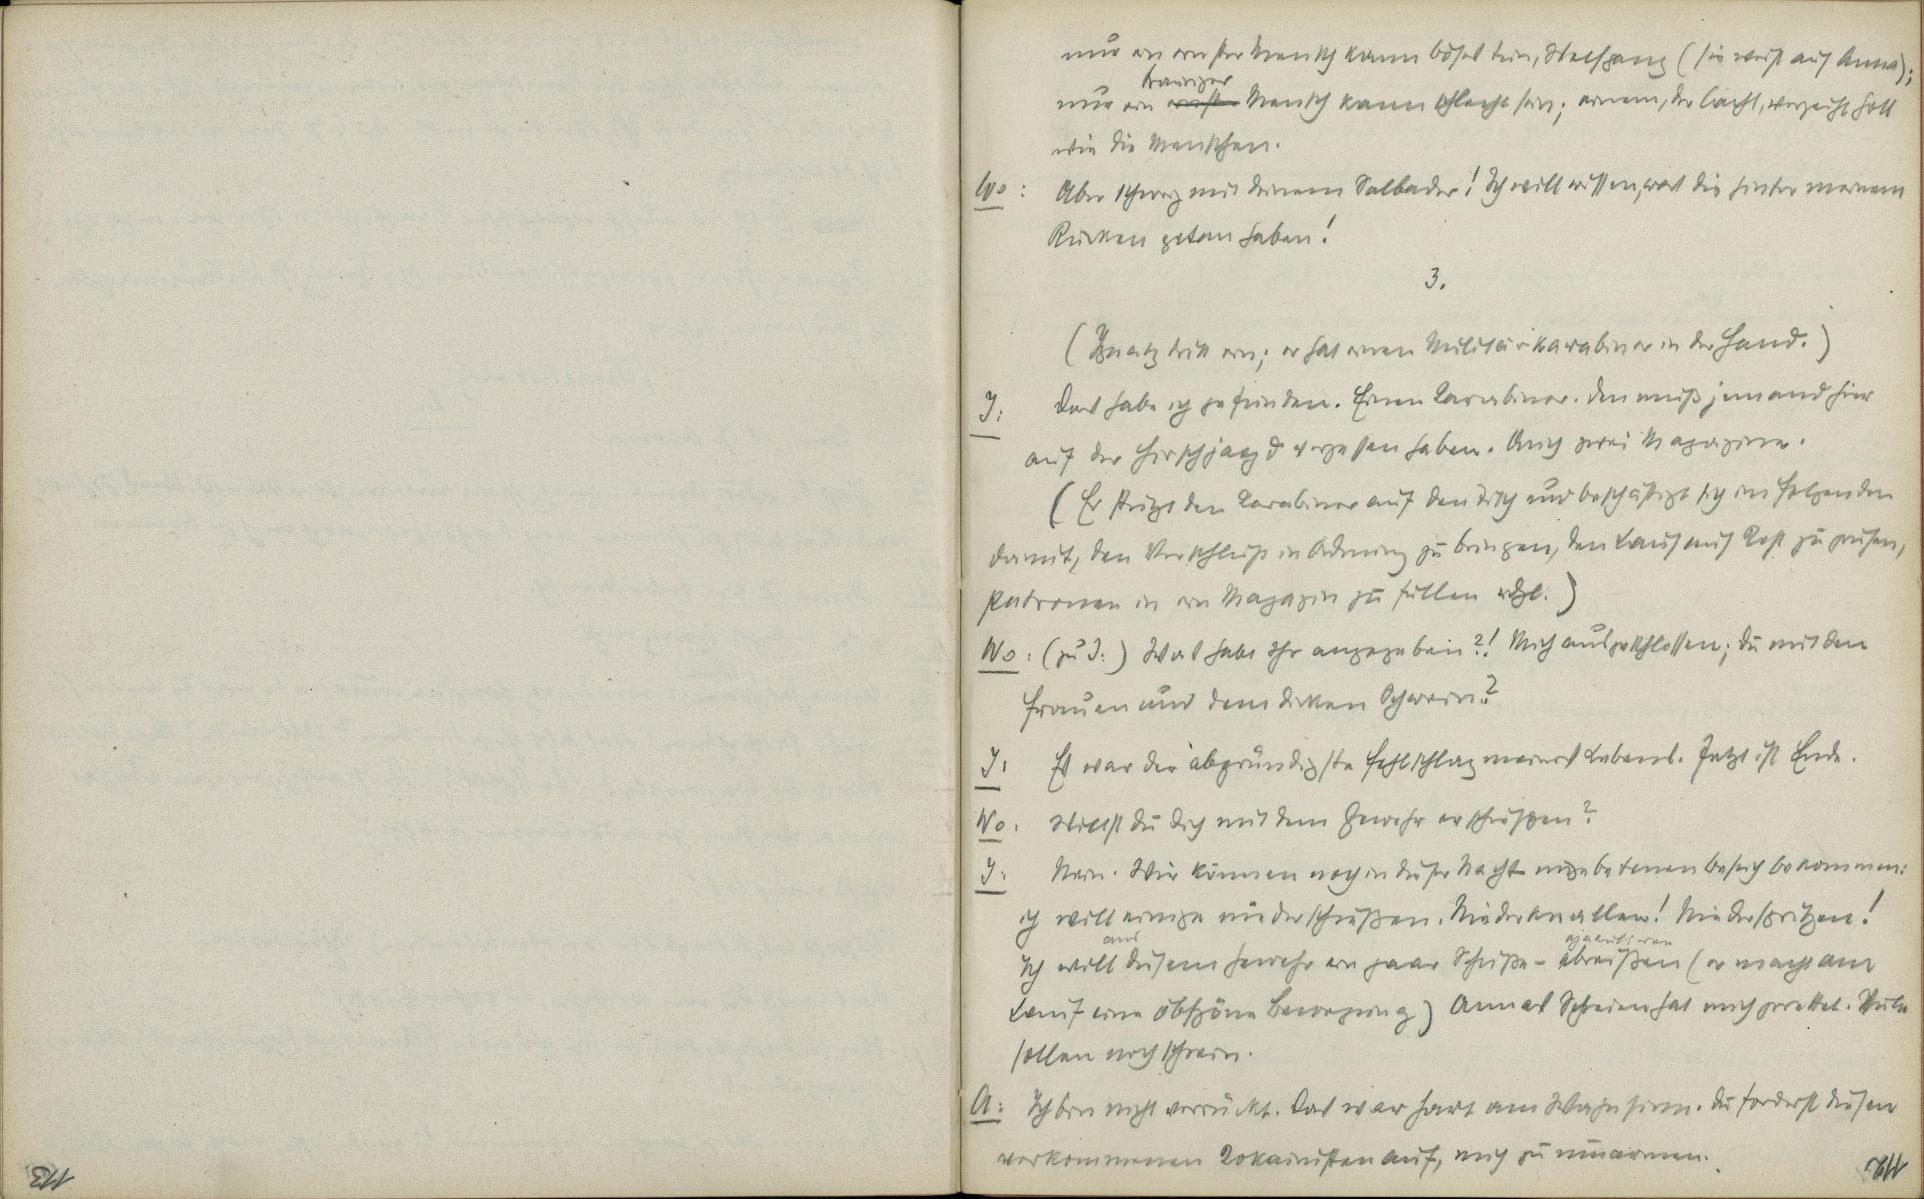 nur ein ernster Mensch kann böses tun, Wolfgang (sie weist auf Anna);
trauriger
nur ein ernster Mensch kann schlecht sein; einem, der lacht, verzeiht Gott
wie die Menschen.
Wo: Aber schweig mit deinem Salbader! Ich will wissen, was die hinter meinem
Rücken getan haben!
3.
(Ignatz tritt ein; er hat einen Militärkarabiner in der Hand.)
I: Das habe ich gefunden. Einen Karabiner. Den muß jemand hier
auf der Hirschjagd vergessen haben. Auch zwei Magazine.
(Er stützt den Karabiner auf den Tisch und beschäftigt sich im folgenden
damit, den Verschluß in Ordnung zu bringen, den Lauf auf Rost zu prüfen,
Patronen in ein Magazin zu füllen udgl.)
Wo: (zu I:) Was habt Ihr angegeben?! Mich ausgeschlossen; du mit den
Frauen und dem dicken Schwein?
I: Es war der abgründigste Fehlschlag meines Lebens. Jetzt ist Ende.
Wo: Willst du dich mit dem Gewehr erschießen?
I: Nein. Wir können noch in dieser Nacht ungebetenen Besuch bekommen:
ich will einige niederschießen. Niederknallen! Niederspritzen!
aus ejakulieren
Ich will diesem Gewehr ein paar Schüße - abreißen (er macht am
Lauf eine obszöne Bewegung) Annas Schreien hat mich gerettet. Viele
sollen noch schrein.
A: Ich bin nicht verrückt. Das war hart am Wahnsinn. Du forderst diesen
verkommenen Kokainisten auf, mich zu umarmen.
113
112